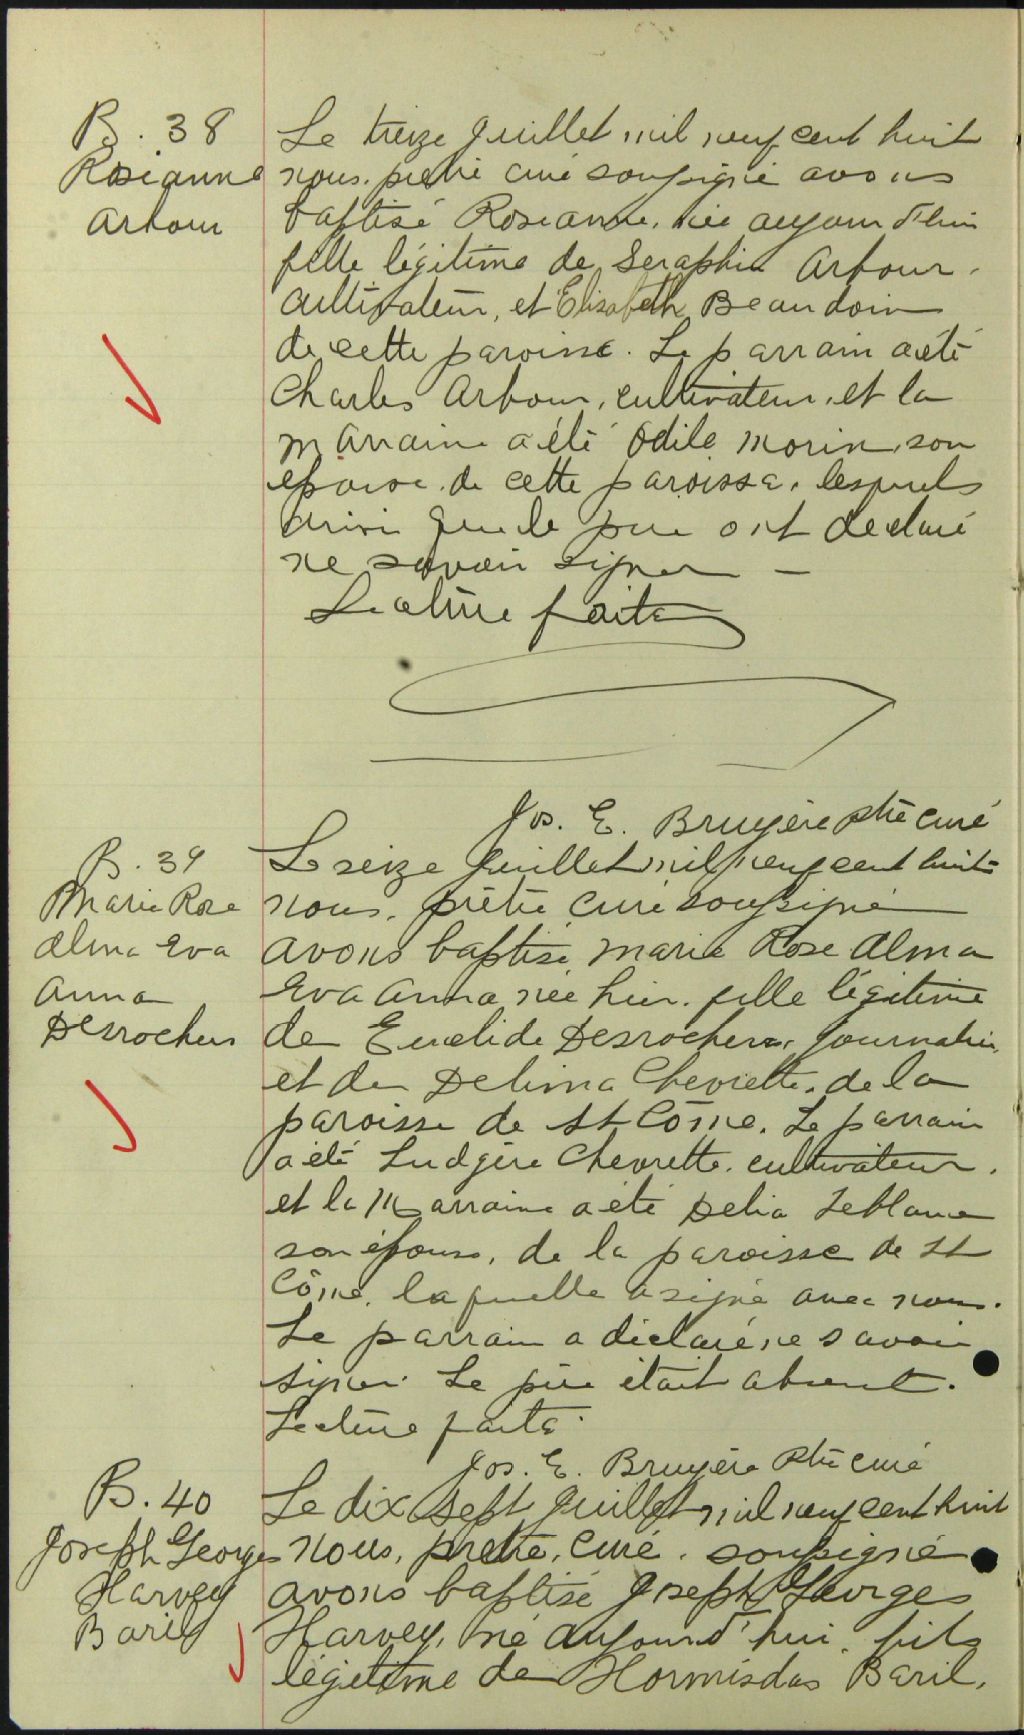 B. 38
Roseanna
Arbour
Le treize Juillet mil neuf cent huit
nous. prêtre curé soussigné avons
baptisé Roseanna, née aujourd'hui
fille légitime de Seraphin Arbour.
cultivateur, et Elisabeth Beaudoin
de cette paroisse. Le parrain a été
Charles Arbour, cultivateur, et la
marraine a été Odile Morin, son
épouse de cette paroisse, lesquels
ainsi que le père ont declaré
ne savoir signer —
Lecture faite
Jos. E. Bruyère ptre curé
B. 39
Marie Rose
Alma Eva
Anna
Desrochers
Le seize Juillet mil neuf cent huit
nous. prêtre curé soussigné
avons baptisé Marie Rose Alma
Eva Anna née hier. fille légitime
de Euclide Desrochers, journalier,
et de Delima Chevrette. de la
paroisse de St Côme. Le parrain
a été Ludgère Chevrette. cultivateur.
et la Marraine a été Delia Leblanc
son épouse, de la paroisse de St
Côme. laquelle a signé avec nous.
Le parrain a déclaré ne savoir
signer. Le père était absent.
Lecture faite.
Jos. E. Bruyère Ptre curé
B. 40
Joseph Georges
Harvey
Baril
Le dix sept Juillet mil neuf cent huit
nous, prêtre, curé. soussigné
avons baptisé Joseph Georges
Harvey, né aujourd'hui, fils
légitime de Hormisdas Baril,